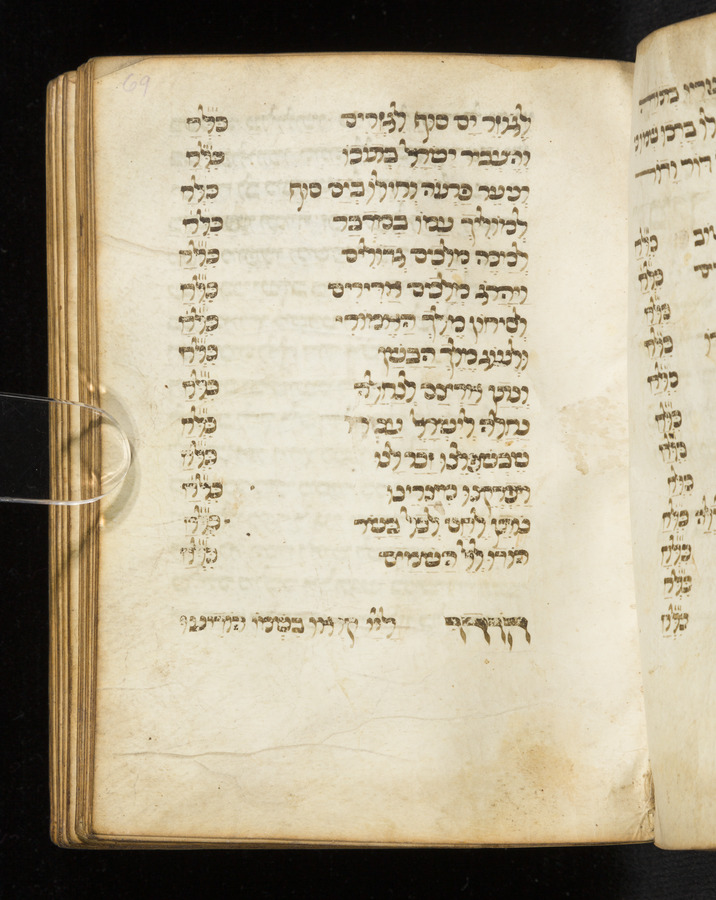 69
לגוזר ים סוף לגזרים כלח
והעביר ישראל בתוכו כלח
ונער פרעה וחילו בים סוף כלח
למוליך עמו במדבר כלח
למכה מלכים גדולים כלח
ויהרג מלכים אדירים כלח
לסיחון מלך האמורי כלח
ולעוג מלך הבשן כלח
ונתן ארצם לנחלה כלח
נחלה לישראל עבדו כלח
שבשפלנו זכר לנו כלח
ויפרקנו מצרינו כלח
נותן לחם לכל בשר כלח
הודו לאל השמים כלח
הודו ליי קראו בשמו הודיעו